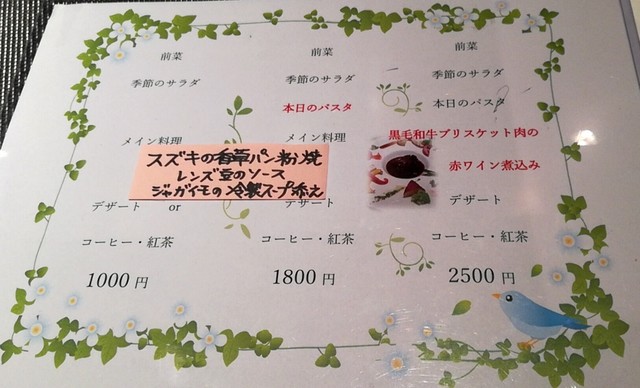 前菜
季節のサラダ
メイン料理
デザート or
コーヒー・紅茶
1000 円
前菜
季節のサラダ
本日のパスタ
メイン料理
デザート
コーヒー・紅茶
1800 円
スズキの香草パン粉焼
レンズ豆のソース
ジャガイモの冷製スープ添え
前菜
季節のサラダ
本日のパスタ
黒毛和牛ブリスケット肉の
赤ワイン煮込み
デザート
コーヒー・紅茶
2500 円